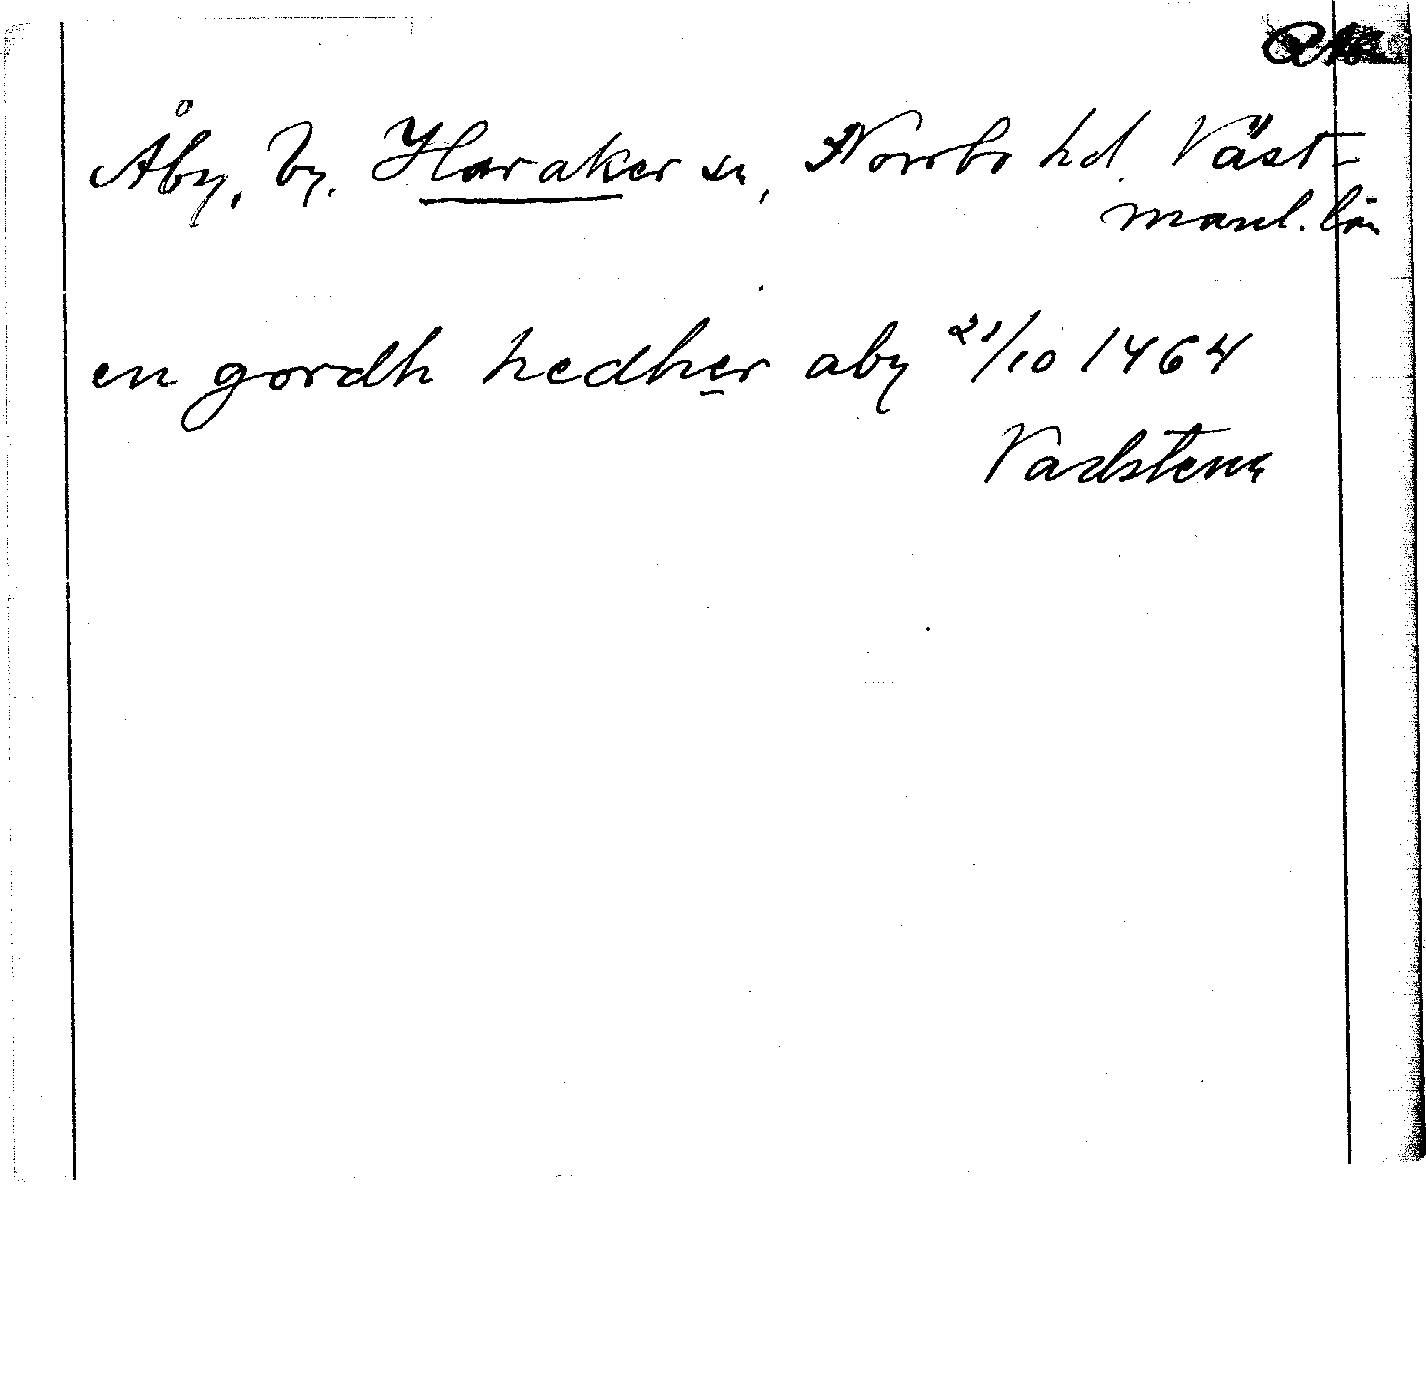 Åby, by, Haraker sn, Norrbo hd.Väst-
manl. län
en gordh hedher aby 21/10 1464
Vadstena